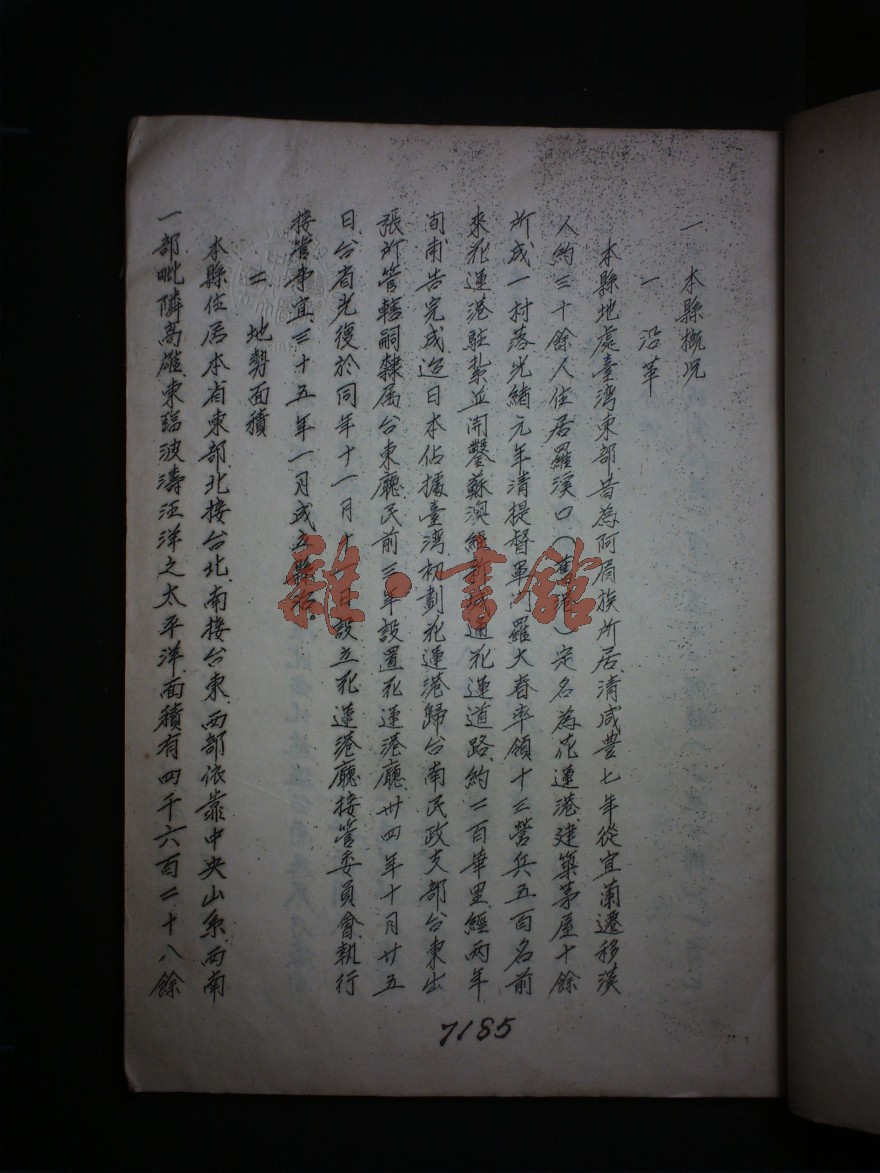 一 本縣概况
一 沿革
本縣地處臺湾東部昔為阿眉族所居、清咸豊七年從宜蘭遷移漢
人約三十餘人住居羅漢口（舊港）定名為花運港建築茅屋十餘
所成一村落光緒元年清提督軍门羅大春率領十三营兵五百名前
來花運港駐紮並開鑿蘇澳經新城通花運道路、約二百華里經两年
间甫告完成迨日本佔據臺湾、初劃花運港歸台南民政支部台東出
張所管轄嗣隸属台東廳民前三年設置花運港廳、卅四年十月廿五
日台省光復於同年十一月十 日設立花蓮港廳接管委員會執行
接管事宜、三十五年一月成立縣治。
二 地勢面積
本縣住居本省東部、北接台北、南接台東、西部依靠中央山系、西南
一部毗隣高雄、東臨波濤汪洋之太平洋、面積有四千六百二十八餘
7185
雜·書館